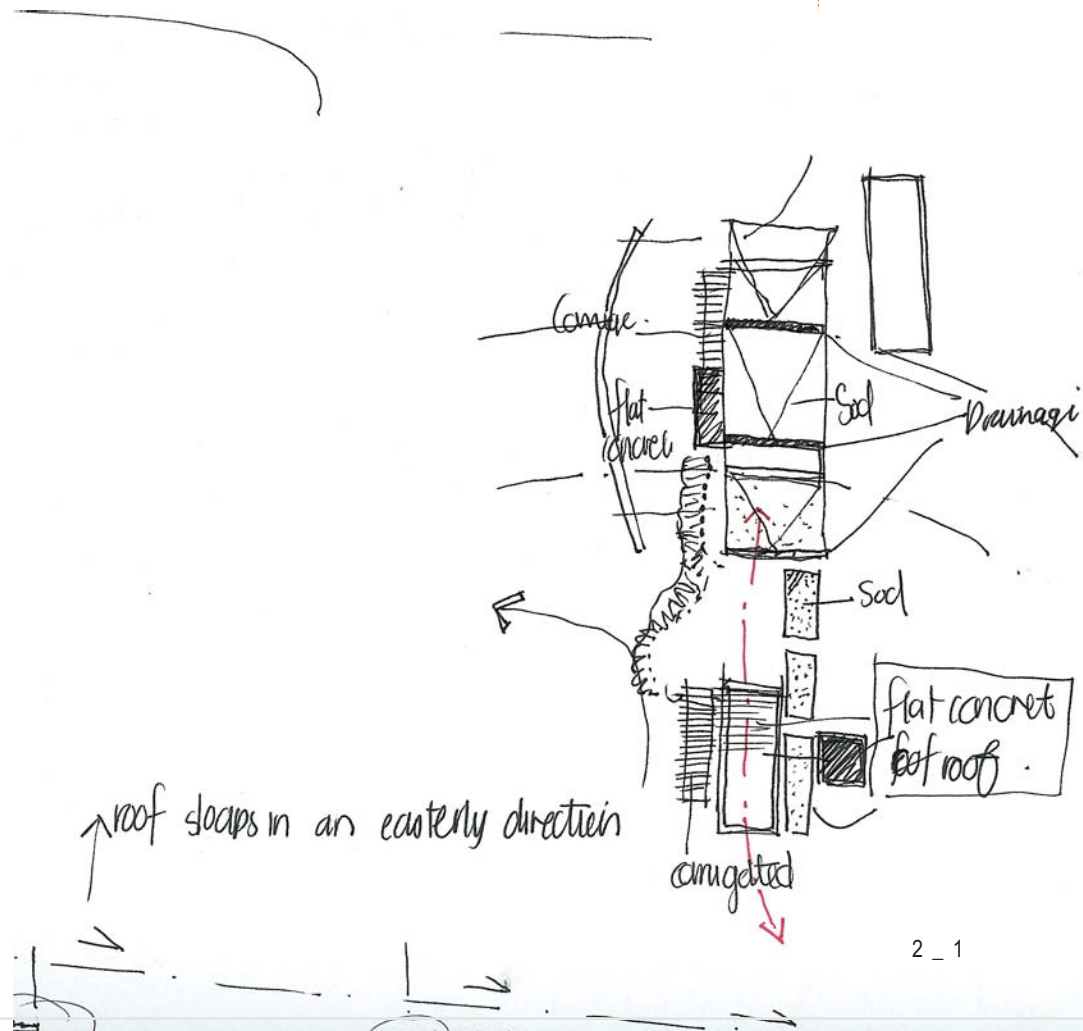 flat
concrete
Sod
Drainage
Sod
flat concret
roof .
roof sloaps in an easterly direction
corrugated
2_1